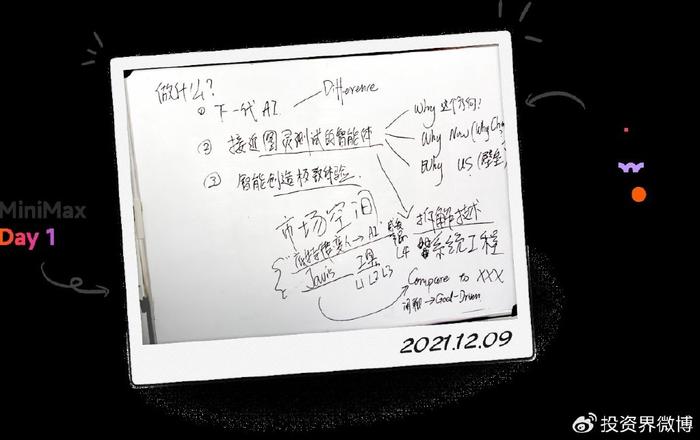 做什么?
① 下一代 AI. Difference
② 接近图灵测试的智能体
③ 智能创造极致体验.
Why 这个方向!
Why Now (Why Chi
Why US (壁垒
市场空间
拆解技术
系统工程
人 → AI
Javis 工具 L4
L1 L2 L3
Compare to XXX
闲聊 → Goal-Driven
MiniMax
Day 1
2021.12.09
投资界微博